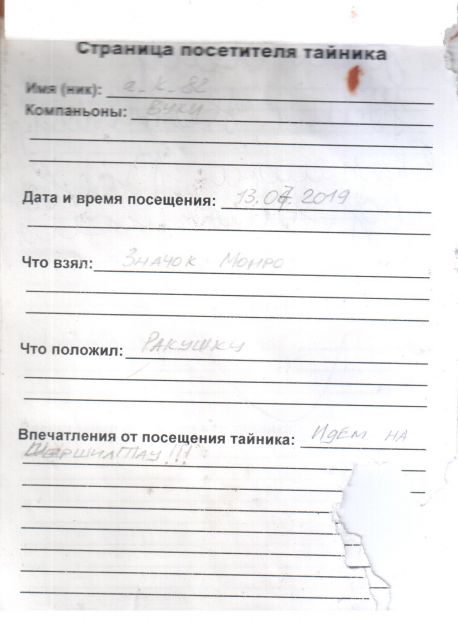 Страница посетителя тайника
Имя (ник): a_k_82
Компаньоны: Вуки
Дата и время посещения: 13.07.2019
Что взял: Значок Монро
Что положил: Ракушку
Впечатления от посещения тайника: Идем на
Шершилтау!!!